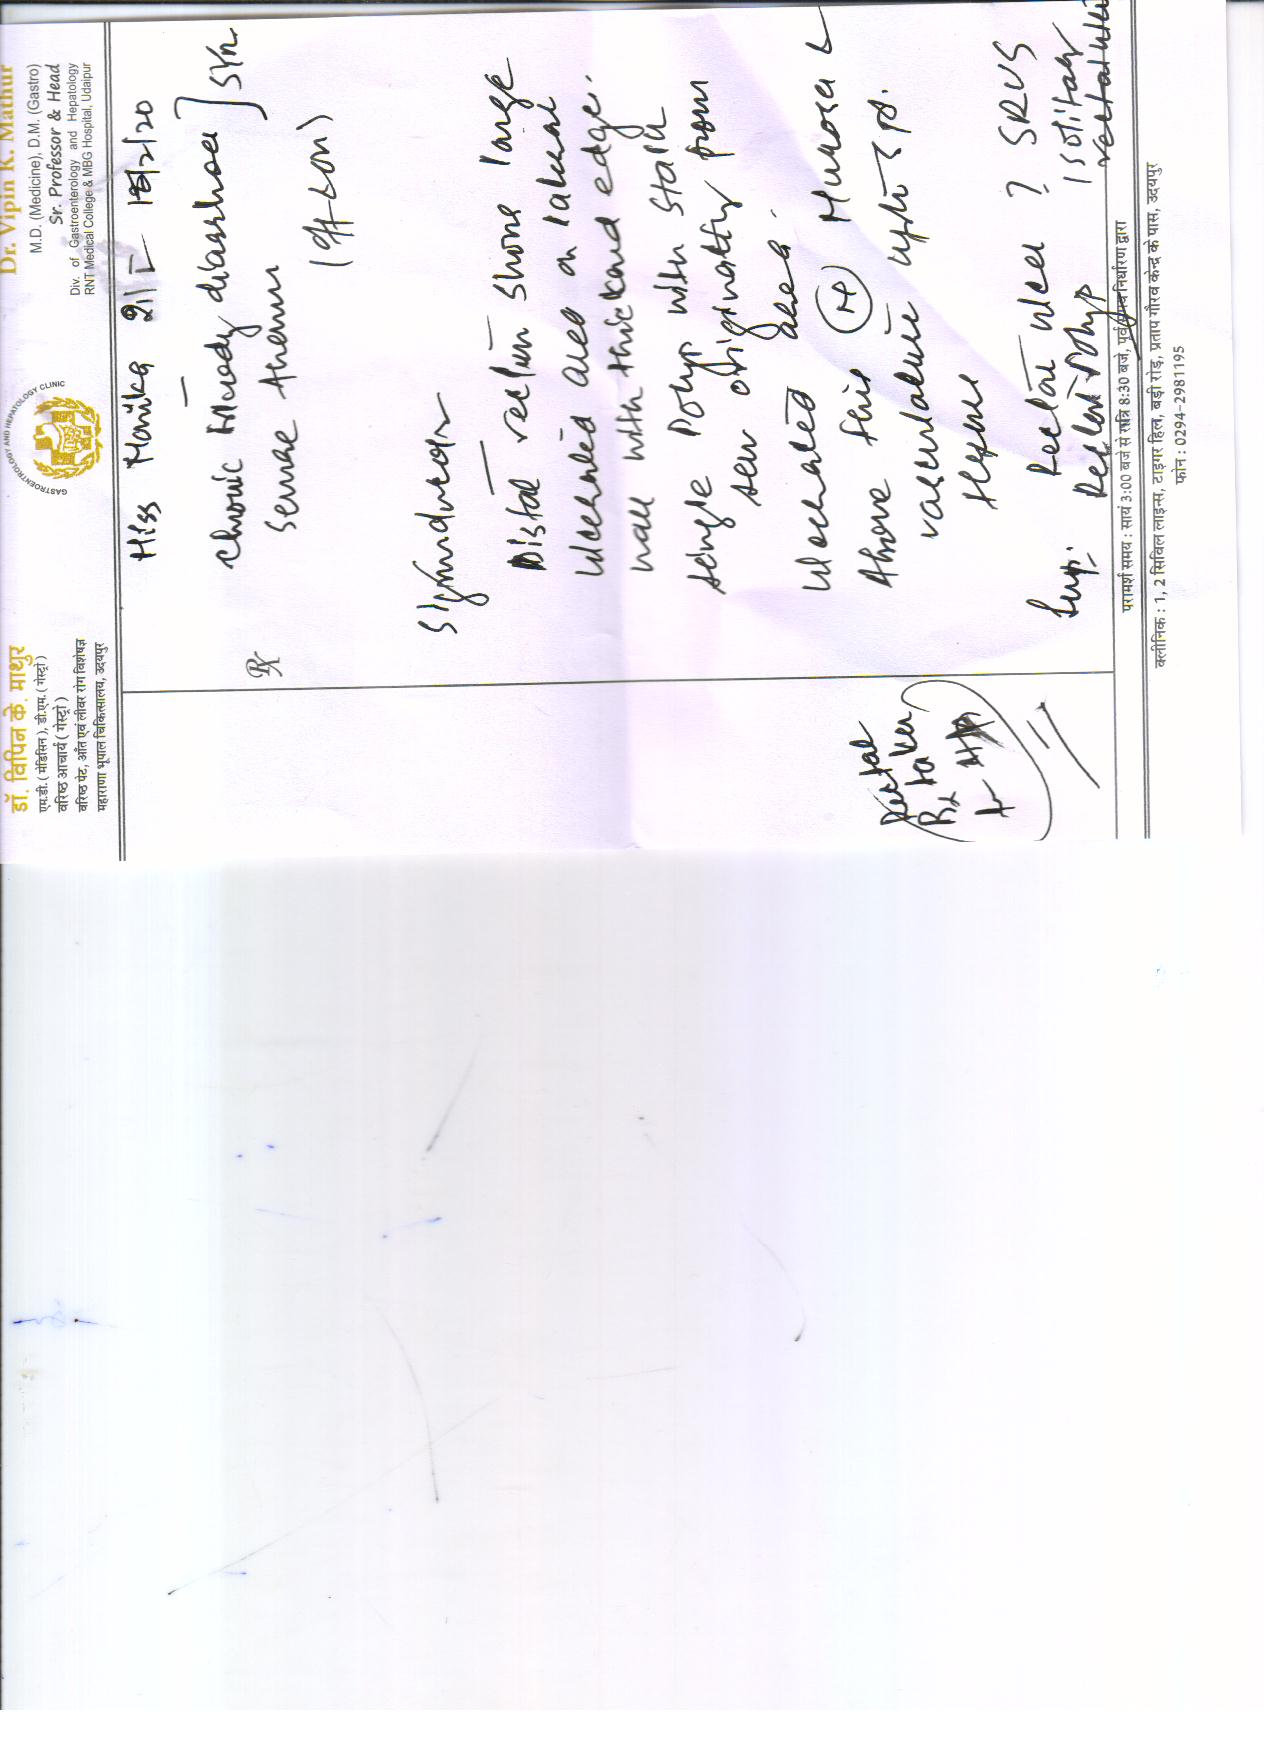 डॉ. विपिन के. माथुर
एम.डी. ( मेडिसिन ), डी.एम. ( गेस्ट्रो )
वरिष्ठ आचार्य ( गेस्ट्रो )
वरिष्ठ पेट, आँत एवं लीवर रोग विशेषज्ञ
महाराणा भूपाल चिकित्सालय, उदयपुर
GASTROENTEROLOGY AND HEPATOLOGY CLINIC
Dr. Vipin K. Mathur
M.D. (Medicine), D.M. (Gastro)
Sr. Professor & Head
Div. of Gastroenterology and Hepatology
RNT Medical College & MBG Hospital, Udaipur
Miss Monika 21 F /2/20
Rx
chronic bloody diarrhoea ] 5Yr
Severe Anemia
(off & on)
Sigmoidoscopy
Distal rectum shows large
ulcerated area on lateral
wall with thickened edge.
single Polyp with stalk
seen originating from
ulcerated area.
Above this (N) Mucosa &
vasculature upto
flexure
Imp: Rectal ulcer ? SRUS
Rectal Polyp
Rectal
Bx taken
परामर्श समय : सायं 3:00 बजे से रात्रि 8:30 बजे, पूर्व समय निर्धारण द्वारा
क्लीनिक : 1, 2 सिविल लाइन्स, टाइगर हिल, बड़ी रोड़, प्रताप गौरव केन्द्र के पास, उदयपुर
फोन : 0294-2981195